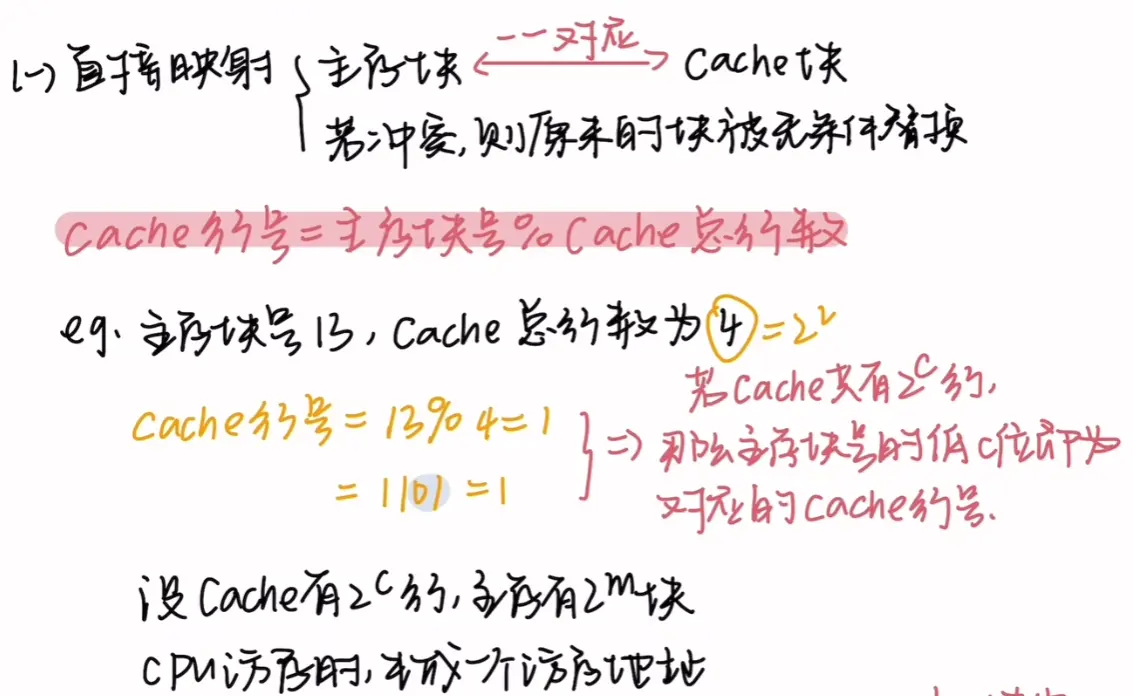 (一)直接映射 { 主存块 <一一对应> Cache块
若冲突,则原来的块被无条件替换
Cache行号=主存块号%Cache总行数
eg. 主存块号13, Cache总行数为4=2²
若Cache共有2^c行,
Cache行号=13%4=1 } => 那么主存块号的低c位即为
=1101=1 对应的Cache行号.
设Cache有2^c行,主存有2^m块
CPU访存时,生成一个访存地址